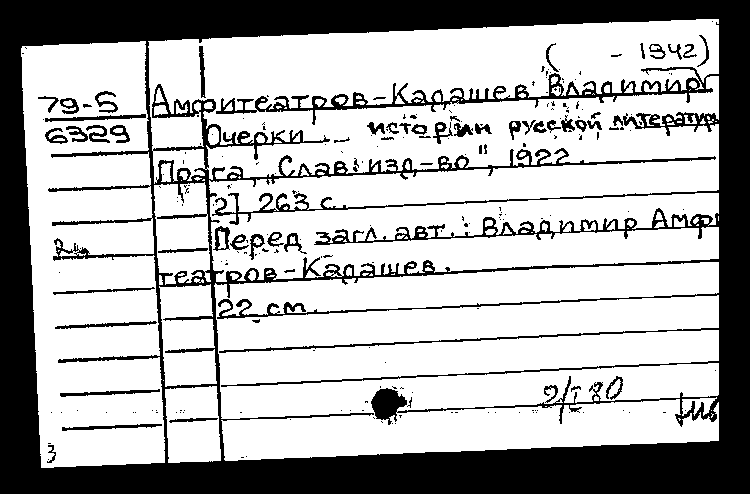 ( - 1942)
79-5 Амфитеатров-Кадашев, Владимир
6329 Очерки истории русской литератур
Прага, „Слав. изд-во", 1922.
[2], 263 с.
Перед загл. авт.: Владимир Амфи
театров-Кадашев.
22 см.
9/I 80
3